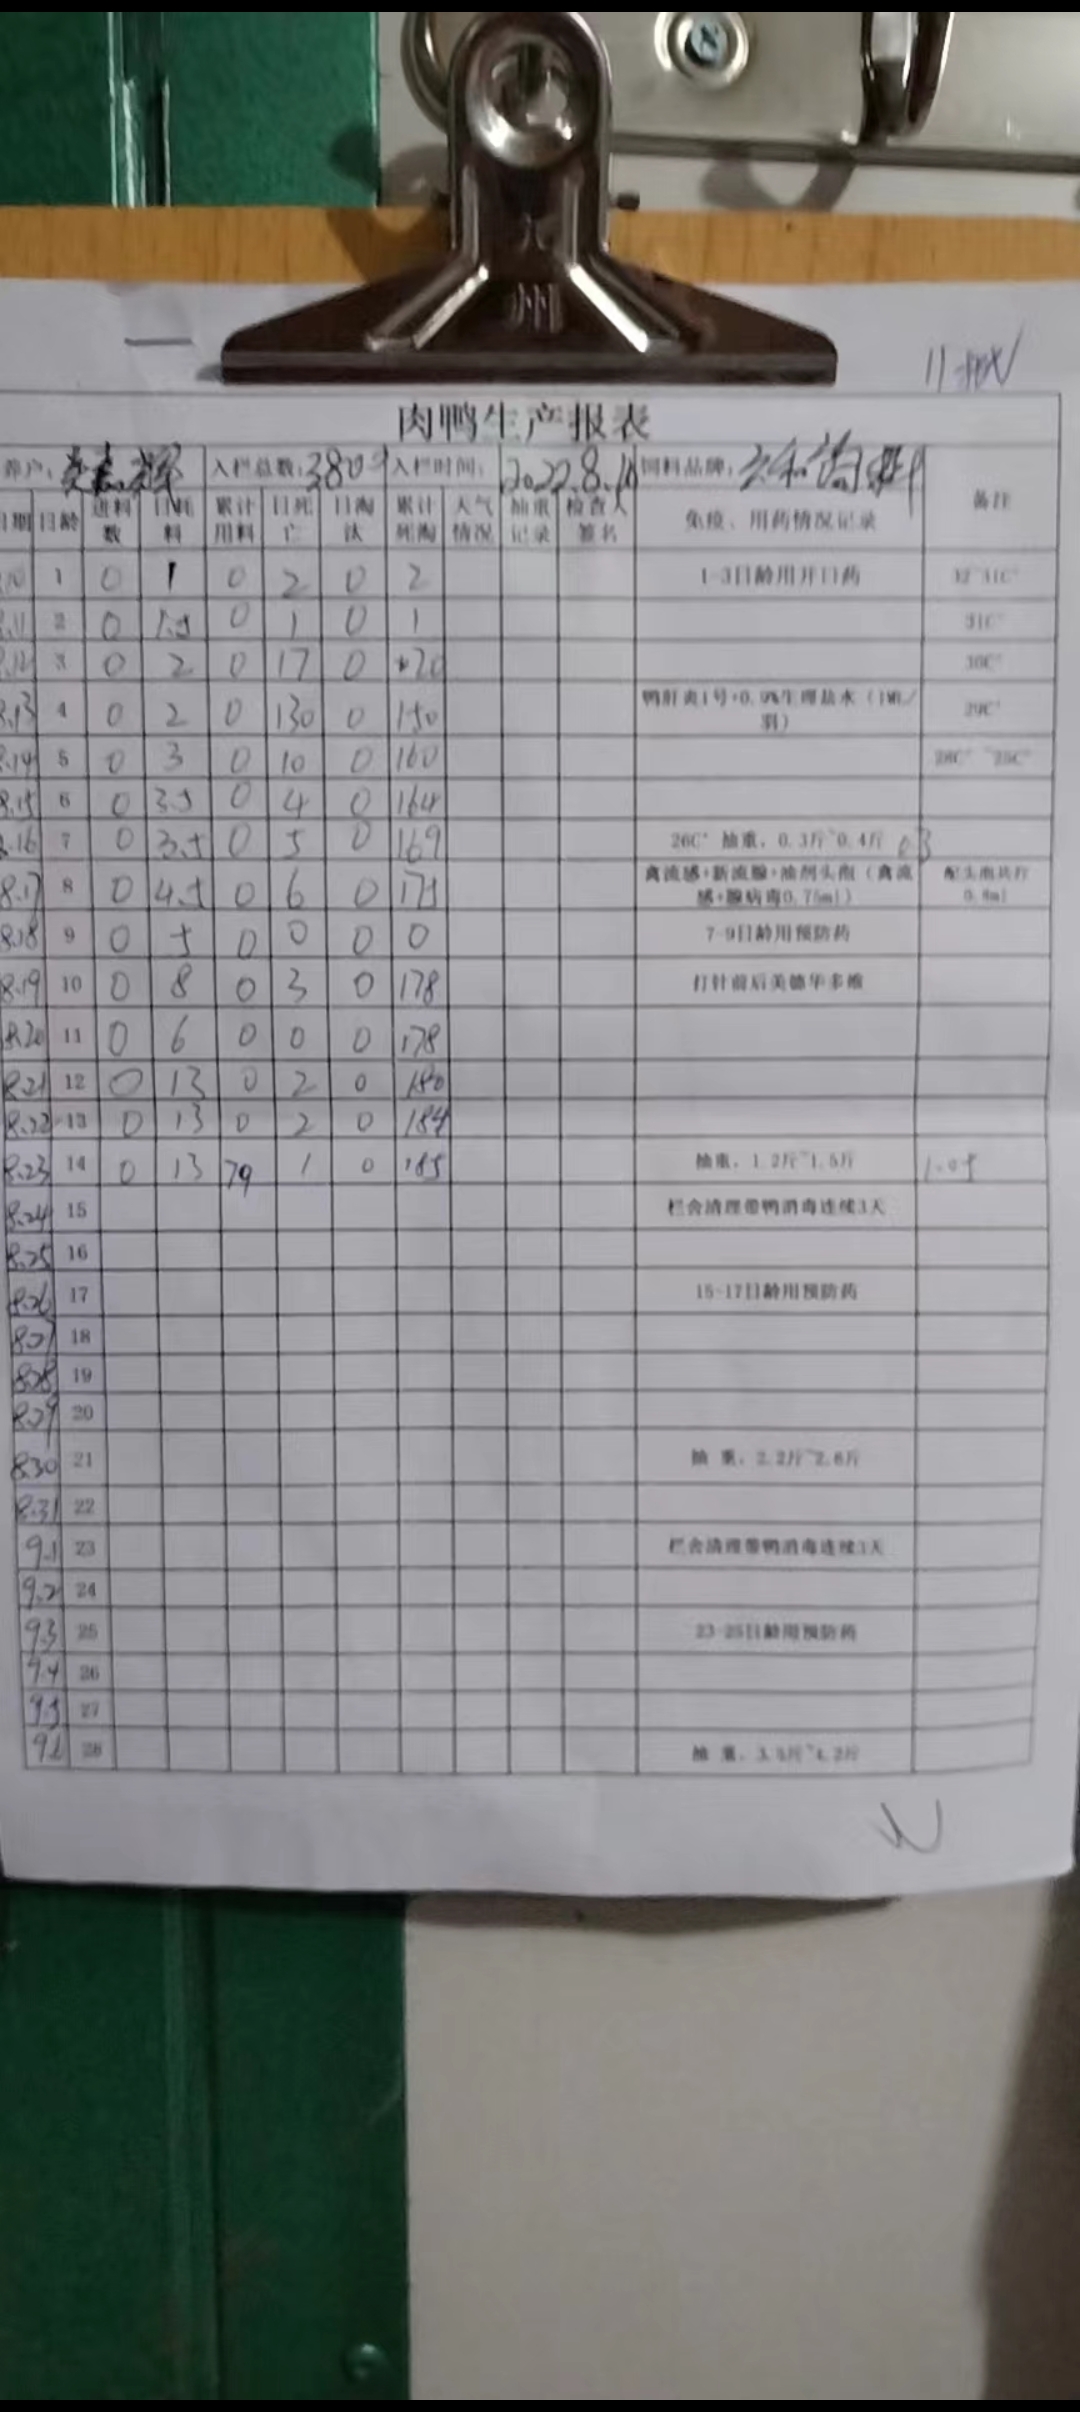 州
11批
肉鸭生产报表
养户: 入栏总数:3803 入栏时间: 2022.8.10 饲料品牌:
日期 日龄 进料数 日耗料 累计用料 日死亡 日淘汰 累计死淘 天气情况 抽重记录 检查人签名 免疫、用药情况记录 备注
8.10 1 0 1 0 2 0 2 1-3日龄用开口药
8.11 2 0 1.5 0 1 0 1 31C°
8.12 3 0 2 0 17 0 20 30C°
8.13 4 0 2 0 130 0 150 鸭肝炎1号+0.9%生理盐水(1ML/羽) 29C°
8.14 5 0 3 0 10 0 160 28C°~25C°
8.15 6 0 3.5 0 4 0 164
8.16 7 0 3.5 0 5 0 169 26C° 抽重,0.3斤~0.4斤 0.3
8.17 8 0 4.5 0 6 0 175 禽流感+新流腺+油剂头孢(禽流感+腺病毒0.75ml)
8.18 9 0 5 0 0 0 0 7-9日龄用预防药
8.19 10 0 8 0 3 0 178 打针前后美德华多维
8.20 11 0 6 0 0 0 178
8.21 12 0 13 0 2 0 180
8.22 13 0 13 0 2 0 184
8.23 14 0 13 79 1 0 185 抽重,1.2斤~1.5斤 1.05
8.24 15 栏舍清理带鸭消毒连续3天
8.25 16
8.26 17 15-17日龄用预防药
8.27 18
8.28 19
8.29 20
8.30 21 抽 重,2.2斤~2.6斤
8.31 22
9.1 23 栏舍清理带鸭消毒连续3天
9.2 24
9.3 25 23-25日龄用预防药
9.4 26
9.5 27
9.6 28 抽 重,3.5斤~4.2斤